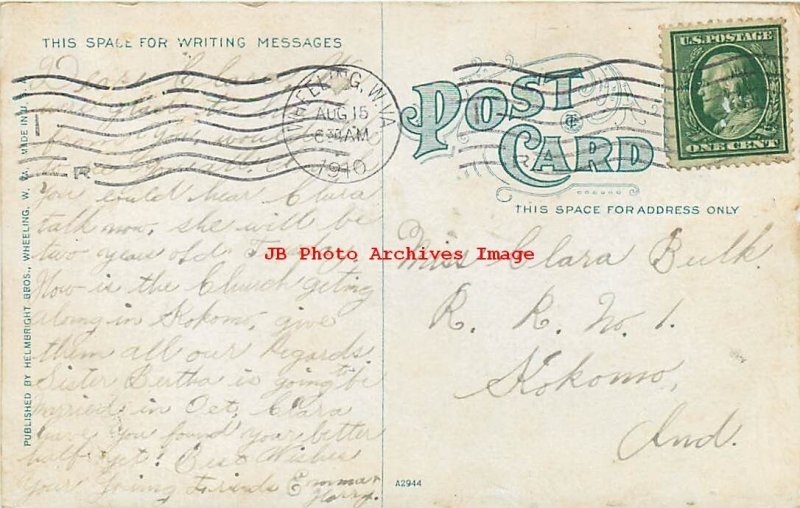 THIS SPACE FOR WRITING MESSAGES
Dear Clara
were glad to hear
from you, would
you could hear Clara
talk now, she will be
two years old
How is the Church geting
along in Kokomo, give
them all our Regards
Sister Bertha is going be
married in Oct, Clara
have you found your better
half yet! Best Wishes
Your loving Friends Emma &
Harry.
PUBLISHED BY HELMBRIGHT BROS., WHEELING, W. VA. MADE IN U.S.
WHEELING, W.VA.
AUG 15
6 30 AM
1910
R
POST
CARD
R
U.S. POSTAGE
ONE CENT
THIS SPACE FOR ADDRESS ONLY
JB Photo Archives Image
Miss Clara Bulk.
R. R. No. 1.
Kokomo,
Ind.
A2944